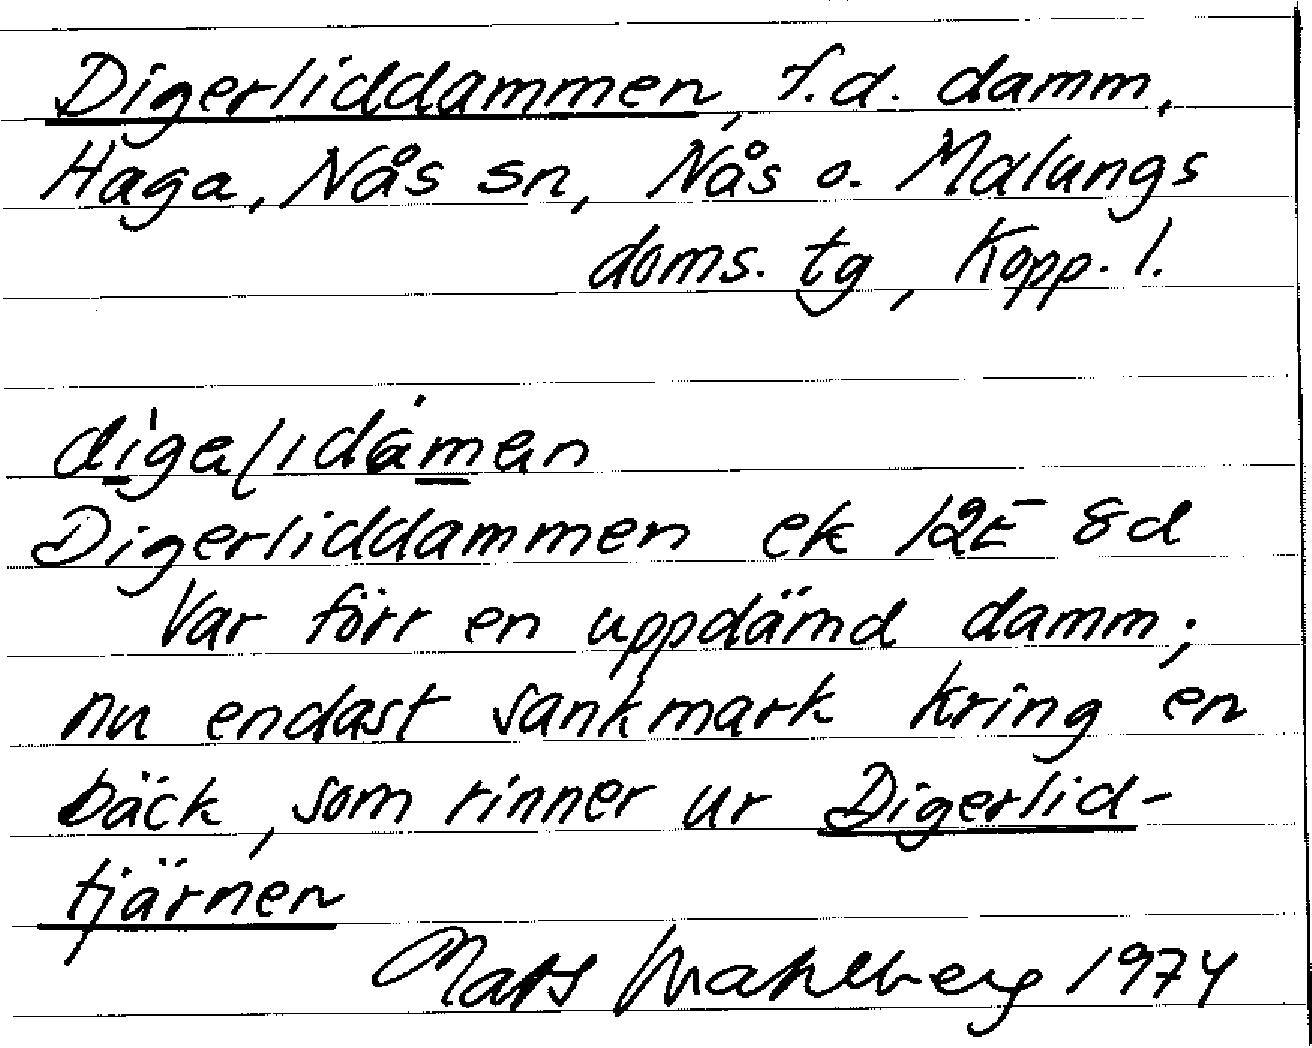 Digerliddammen, f.d. damm,
Haga, Nås sn, Nås o. Malungs
doms. tg, Kopp. l.
Digerliddammen ek 12E 8d
Var förr en uppdämd damm;
nu endast sankmark kring en
bäck, som rinner ur Digerlid-
tjärnen
Mats Wahlberg 1974